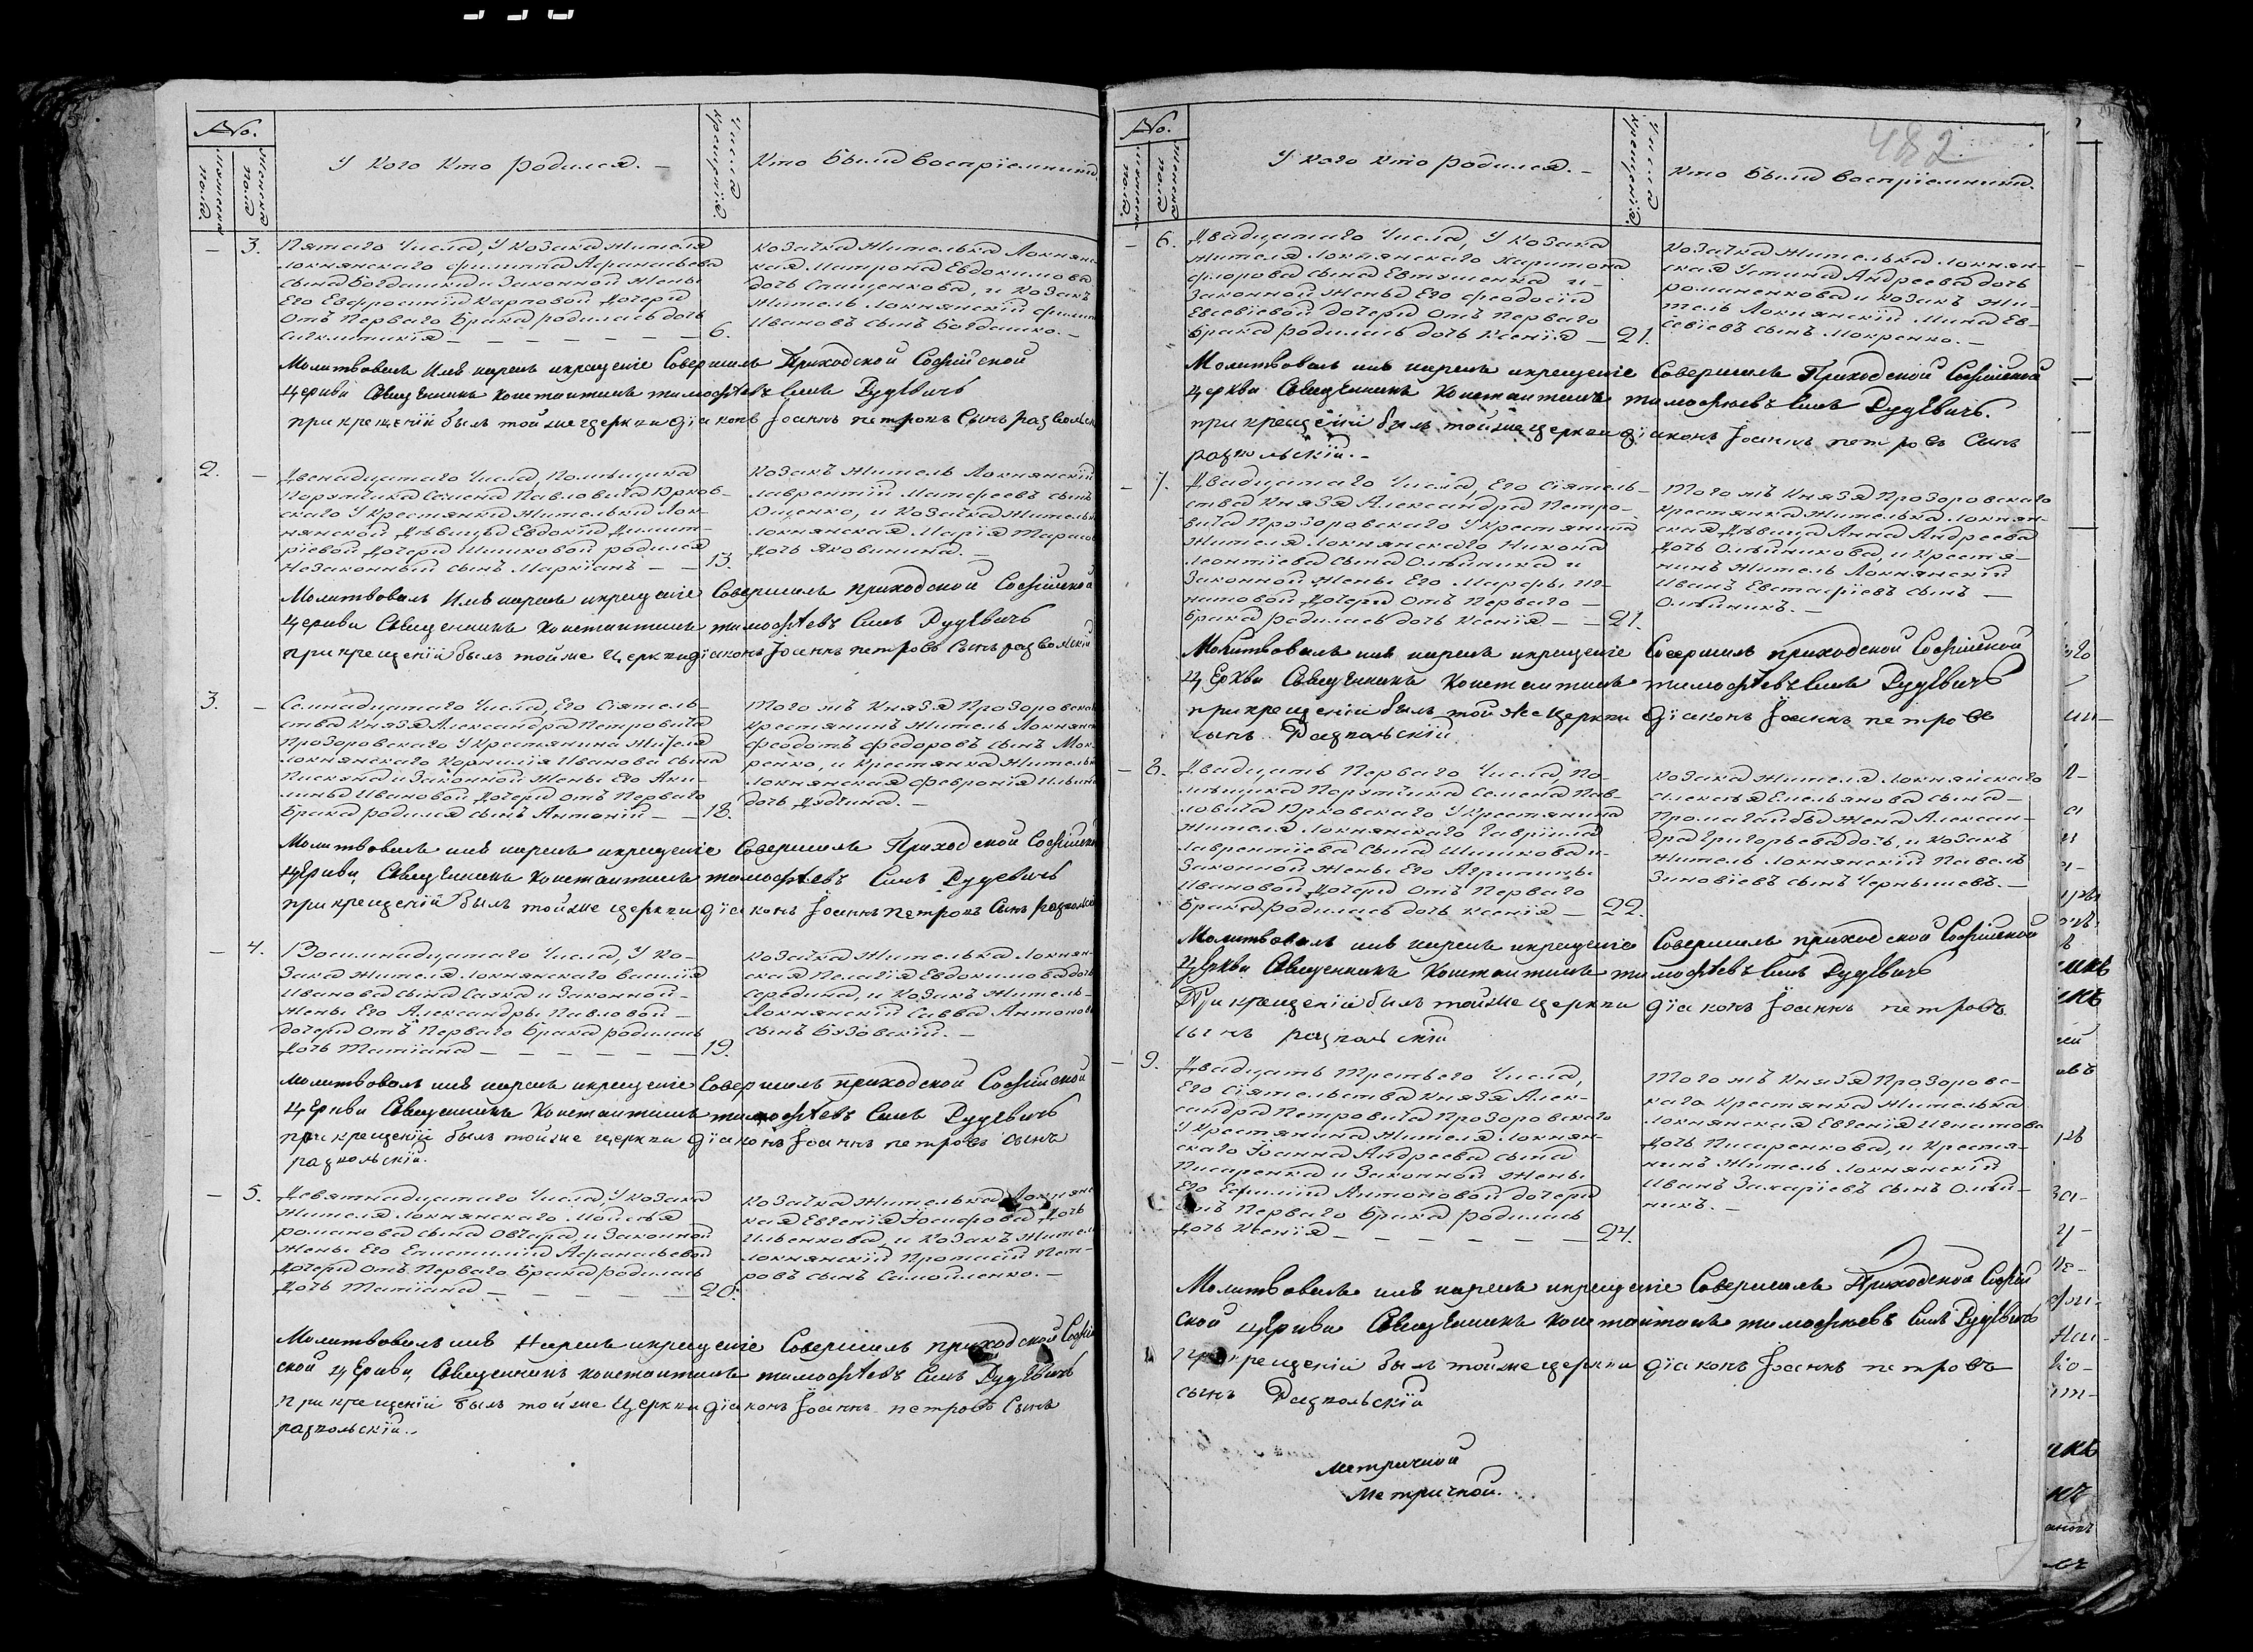 No.
Мужеска
пола.
Женска
пола
У кого кто родился. —
Число
крещенія.
Кто былъ воспріемникъ
— 3.
Пятаго Числа, У Козака Жителя
Локнянскаго Филиппа Афанасьева
сына Богдашка и Законной Жены
Его Евфросиніи Карповой Дочери
Отъ Перваго Брака родилась дочь
Сигклитикія — — — — — — 6.
Козачка Жителька Локнянс
кая Матрона Евдокимова
дочь Спащенкова, и Козакъ
Житель Локнянскій Филип
Ивановъ сынъ Богдашко. —
Молитвовалъ Имя нарекъ икрещеніе Совершилъ Приходской Софійской
Церкви Священникъ Константинъ тимофѣевъ Сынъ Рудѣвичъ
при крещеніи былъ тойже церкви діаконъ Іоаннъ петровъ Сынъ
2. —
Двенадцатаго Числа, Помѣщика
Порутчика Семена Павловича Юрков-
скаго У Крестянки Жительки Лок-
нянской Дѣвицы Евдокіи Димит-
ріевой Дочери Шишковой родился
Незаконный сынъ Маркіанъ — — 13.
Козакъ Житель Локнянскій
Лаврентій Матфеевъ сынъ
Ющенко, и Козачка Жителька
Локнянская Марія Тарасов
Дочь Яковинина. —
Молитвовалъ Имя нарекъ икрещеніе Совершилъ приходской Софійской
Церкви Священникъ Константинъ тимофѣевъ Сынъ Рудѣвичъ
при крещеніи былъ тойже Церкви діаконъ Іоаннъ петровъ Сынъ
3. —
Семнадцатаго Числа, Его Сіятель-
ства Князя Александра Петровича
Прозоровскаго У Крестянина Жителя
Локнянскаго Корнилія Иванова сына
Пискуна и Законной Жены Его Аки-
лины Ивановой Дочери отъ Перваго
Брака родился сынъ Антоній — — 18.
Того жъ Князя Прозоровска
Крестянинъ Житель Локнянск
Феодотъ Федоровъ сынъ Мок-
ренко, и Крестянка Жителька
Локнянская Февронія Ильина
дочь Дудчина. —
Молитвовалъ имя нарекъ икрещеніе Совершилъ Приходской Софійской
Церкви, Священникъ Константинъ тимофѣевъ Сынъ Рудѣвичъ
при крещеніи былъ тойже церкви діаконъ Іоаннъ петровъ Сынъ
— 4.
Восимнадцатаго Числа, У Ко-
зака Жителя Локнянскаго Василія
Иванова сына Саяка и Законной —
Жены Его Александры Павловой —
дочери отъ Перваго Брака родилась
Дочь Татіана — — — — — — 19.
Козачка Жителька Локнян-
ская Пелагія Евдокимова дочь
Середина, и Козакъ Житель-
Локнянскій Савва Антоновъ
сынъ Бузовскій. —
Молитвовалъ имя нарекъ икрещеніе Совершилъ приходской Софійской
Церкви Священникъ Константинъ тимофѣевъ Сынъ Рудѣвичъ
при крещеніи былъ тойже церкви діаконъ Іоаннъ петровъ сынъ
разпольскій.
— 5.
Девятнадцатаго Числа, У Козака
Жителя Локнянскаго Моѵсѣя
Романова сына Овчара, и Законной
Жены Его Епистиміи Афанасьевой
Дочери Отъ Перваго Брака родилась
Дочь Татіана — — — — — 20.
Козачка Жителька Локнянс
кая Евгенія Іосифова Дочь
Ильенкова, и Козакъ Житель
Локнянскій Протасій Пет-
ровъ сынъ Самойленко. —
Молитвовалъ имя Нарекъ икрещеніе Совершилъ приходской Софій
ской церкви, Священникъ Константинъ тимофѣевъ Сынъ Рудѣвичъ
При крещеніи былъ тойже Церкви діаконъ Іоаннъ петровъ Сынъ
разпольскій.
482
No.
Мужеска
пола.
Женска
пола
У кого кто родился. —
Число
крещенія.
Кто былъ воспріемникъ.
— 6.
Двадцатаго Числа, У Козака
Жителя Локнянскаго Харитона
Флорова сына Евтушенка и —
Законной Жены Его Феодосіи
Евсевіевой дочери Отъ Перваго
Брака родилась дочь Ксенія — 21.
Козачка Жителька Локнян-
ская Устина Андреева дочь
Романенкова и Козакъ Жи-
тель Локнянскій Мина Ев-
севіевъ сынъ Мокренко. —
Молитвовалъ имя нарекъ икрещеніе Совершилъ Приходской Софійской
Церкви Священникъ Константинъ тимофеевъ Сынъ Рудѣвичъ.
при крещеніи былъ тойже церкви діаконъ Іоаннъ петровъ Сынъ
разпольскій. —
— 7.
Двадцатаго Числа, Его Сіятель-
ства Князя Александра Петро-
вича Прозоровскаго У Крестянина
Жителя Локнянскаго Никона
Леонтіева сына Олѣйника и
Законной Жены Его Марфы Иг-
натовой Дочери Отъ Перваго —
Брака родилась дочь Ксенія — — 21.
Того жъ Князя Прозоровскаго
Крестянка Жителька Локнян-
ская Дѣвица Анна Андреева
Дочь Олѣйникова, и Крестя-
нинъ Житель Локнянскій
Иванъ Евстафіевъ сынъ —
Олѣйникъ. —
Молитвовалъ имя нарекъ икрещеніе Совершилъ приходской Софійской
Церкви Священникъ Константинъ тимофѣевъ Сынъ Рудѣвичъ
при крещеніи былъ тойже Церкви діаконъ Іоаннъ петровъ
сынъ Разпольскій
— 8.
Двадцать Перваго Числа, По-
мѣщика Порутчика Семена Пав-
ловича Юрковскаго У Крестянина
Жителя Локнянскаго Гавріила
Лаврентіева сына Шишкова и
Законной Жены Его Агрипины
Ивановой Дочери Отъ Перваго
Брака родилась дочь Ксенія — 22.
Козака Жителя Локнянскаго
Алексѣя Емельянова сына —
Жена Алексан-
дра Григорьева дочь, и Козакъ
Житель Локнянскій Павелъ
Зиновіевъ сынъ Чернышевъ. —
Молитвовалъ имя нарекъ икрещеніе Совершилъ приходской Софійской
Церкви Священникъ Константинъ тимофѣевъ Сынъ Рудѣвичъ
При крещеніи былъ тойже церкви діаконъ Іоаннъ петровъ
сынъ разпольскій
— 9.
Двадцать Третьего Числа,
Его Сіятельства Князя Алек-
сандра Петровича Прозоровскаго
У Крестянина Жителя Локнян-
скаго Іоанна Андреева сына
Писаренка и Законной Жены
Его Евфиміи Антоновой дочери
Отъ Перваго Брака родилась
Дочь Ксенія — — — — — — 24.
Того жъ Князя Прозоровс-
каго Крестянка Жителька
Локнянская Евгенія Игнатова
Дочь Писаренкова, и Крестя-
нинъ Житель Локнянскій
Иванъ Захаріевъ сынъ Олѣй-
никъ. —
Молитвовалъ имя нарекъ икрещеніе Совершилъ Приходской Софій
ской Церкви Священникъ Константинъ тимофеевъ Сынъ Рудѣвичъ
При крещеніи былъ тойже церкви діаконъ Іоаннъ петровъ
сынъ Разпольскій
метричной
Метричной.